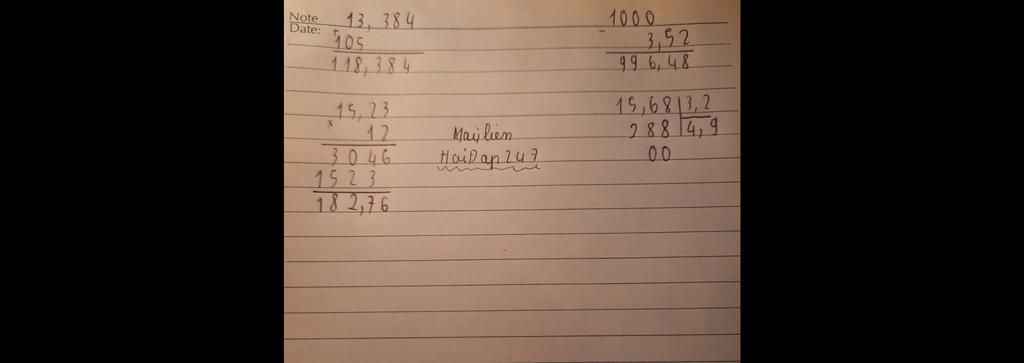 Note
Date:
13,384
+
105
118,384
1000
-
3,52
996,48
15,23
x
12
3046
1523
182,76
HoiDap247
15,68 3,2
288 4,9
00